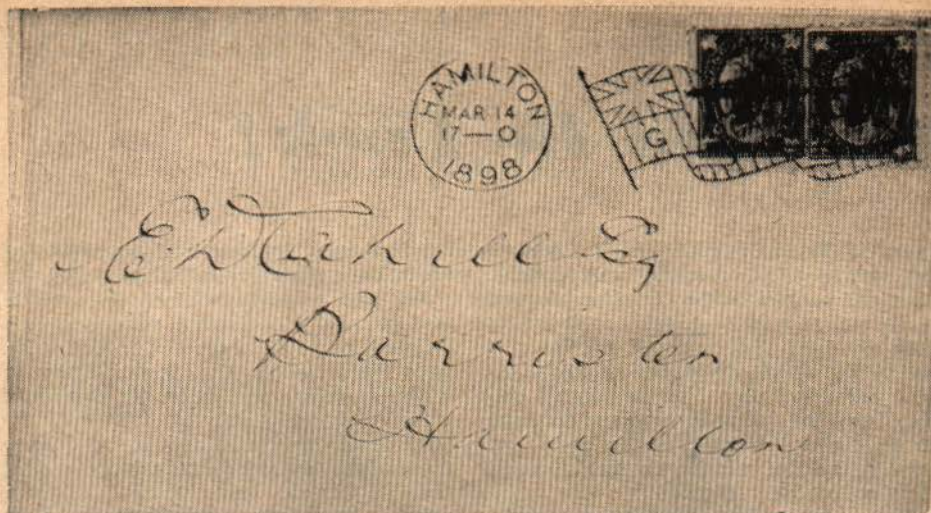 HAMILTON
MAR 14
17—0
1898
G
Esq
Barrister
Hamilton